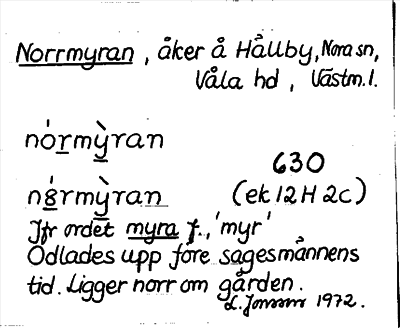 Norrmyran, åker å Hållby, Nora sn,
Våla hd, Västm. l.
nórmỳran
630
n8́rmỳran (ek 12H 2c)
Jfr ordet myra f., 'myr'
Odlades upp före sagesmännens
tid. Ligger norr om gården.
L. Jonsson 1972.